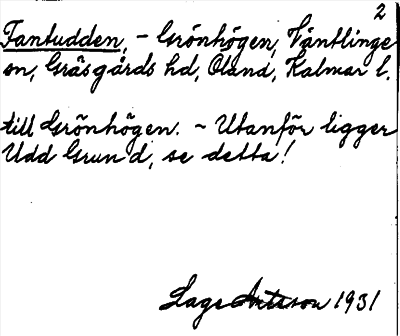 2
Fantudden, - Grönhögen, Ventlinge
sn, Gräsgårds hd, Öland, Kalmar l.
till Grönhögen. - Utanför ligger
Udd Grund, se detta!
1931